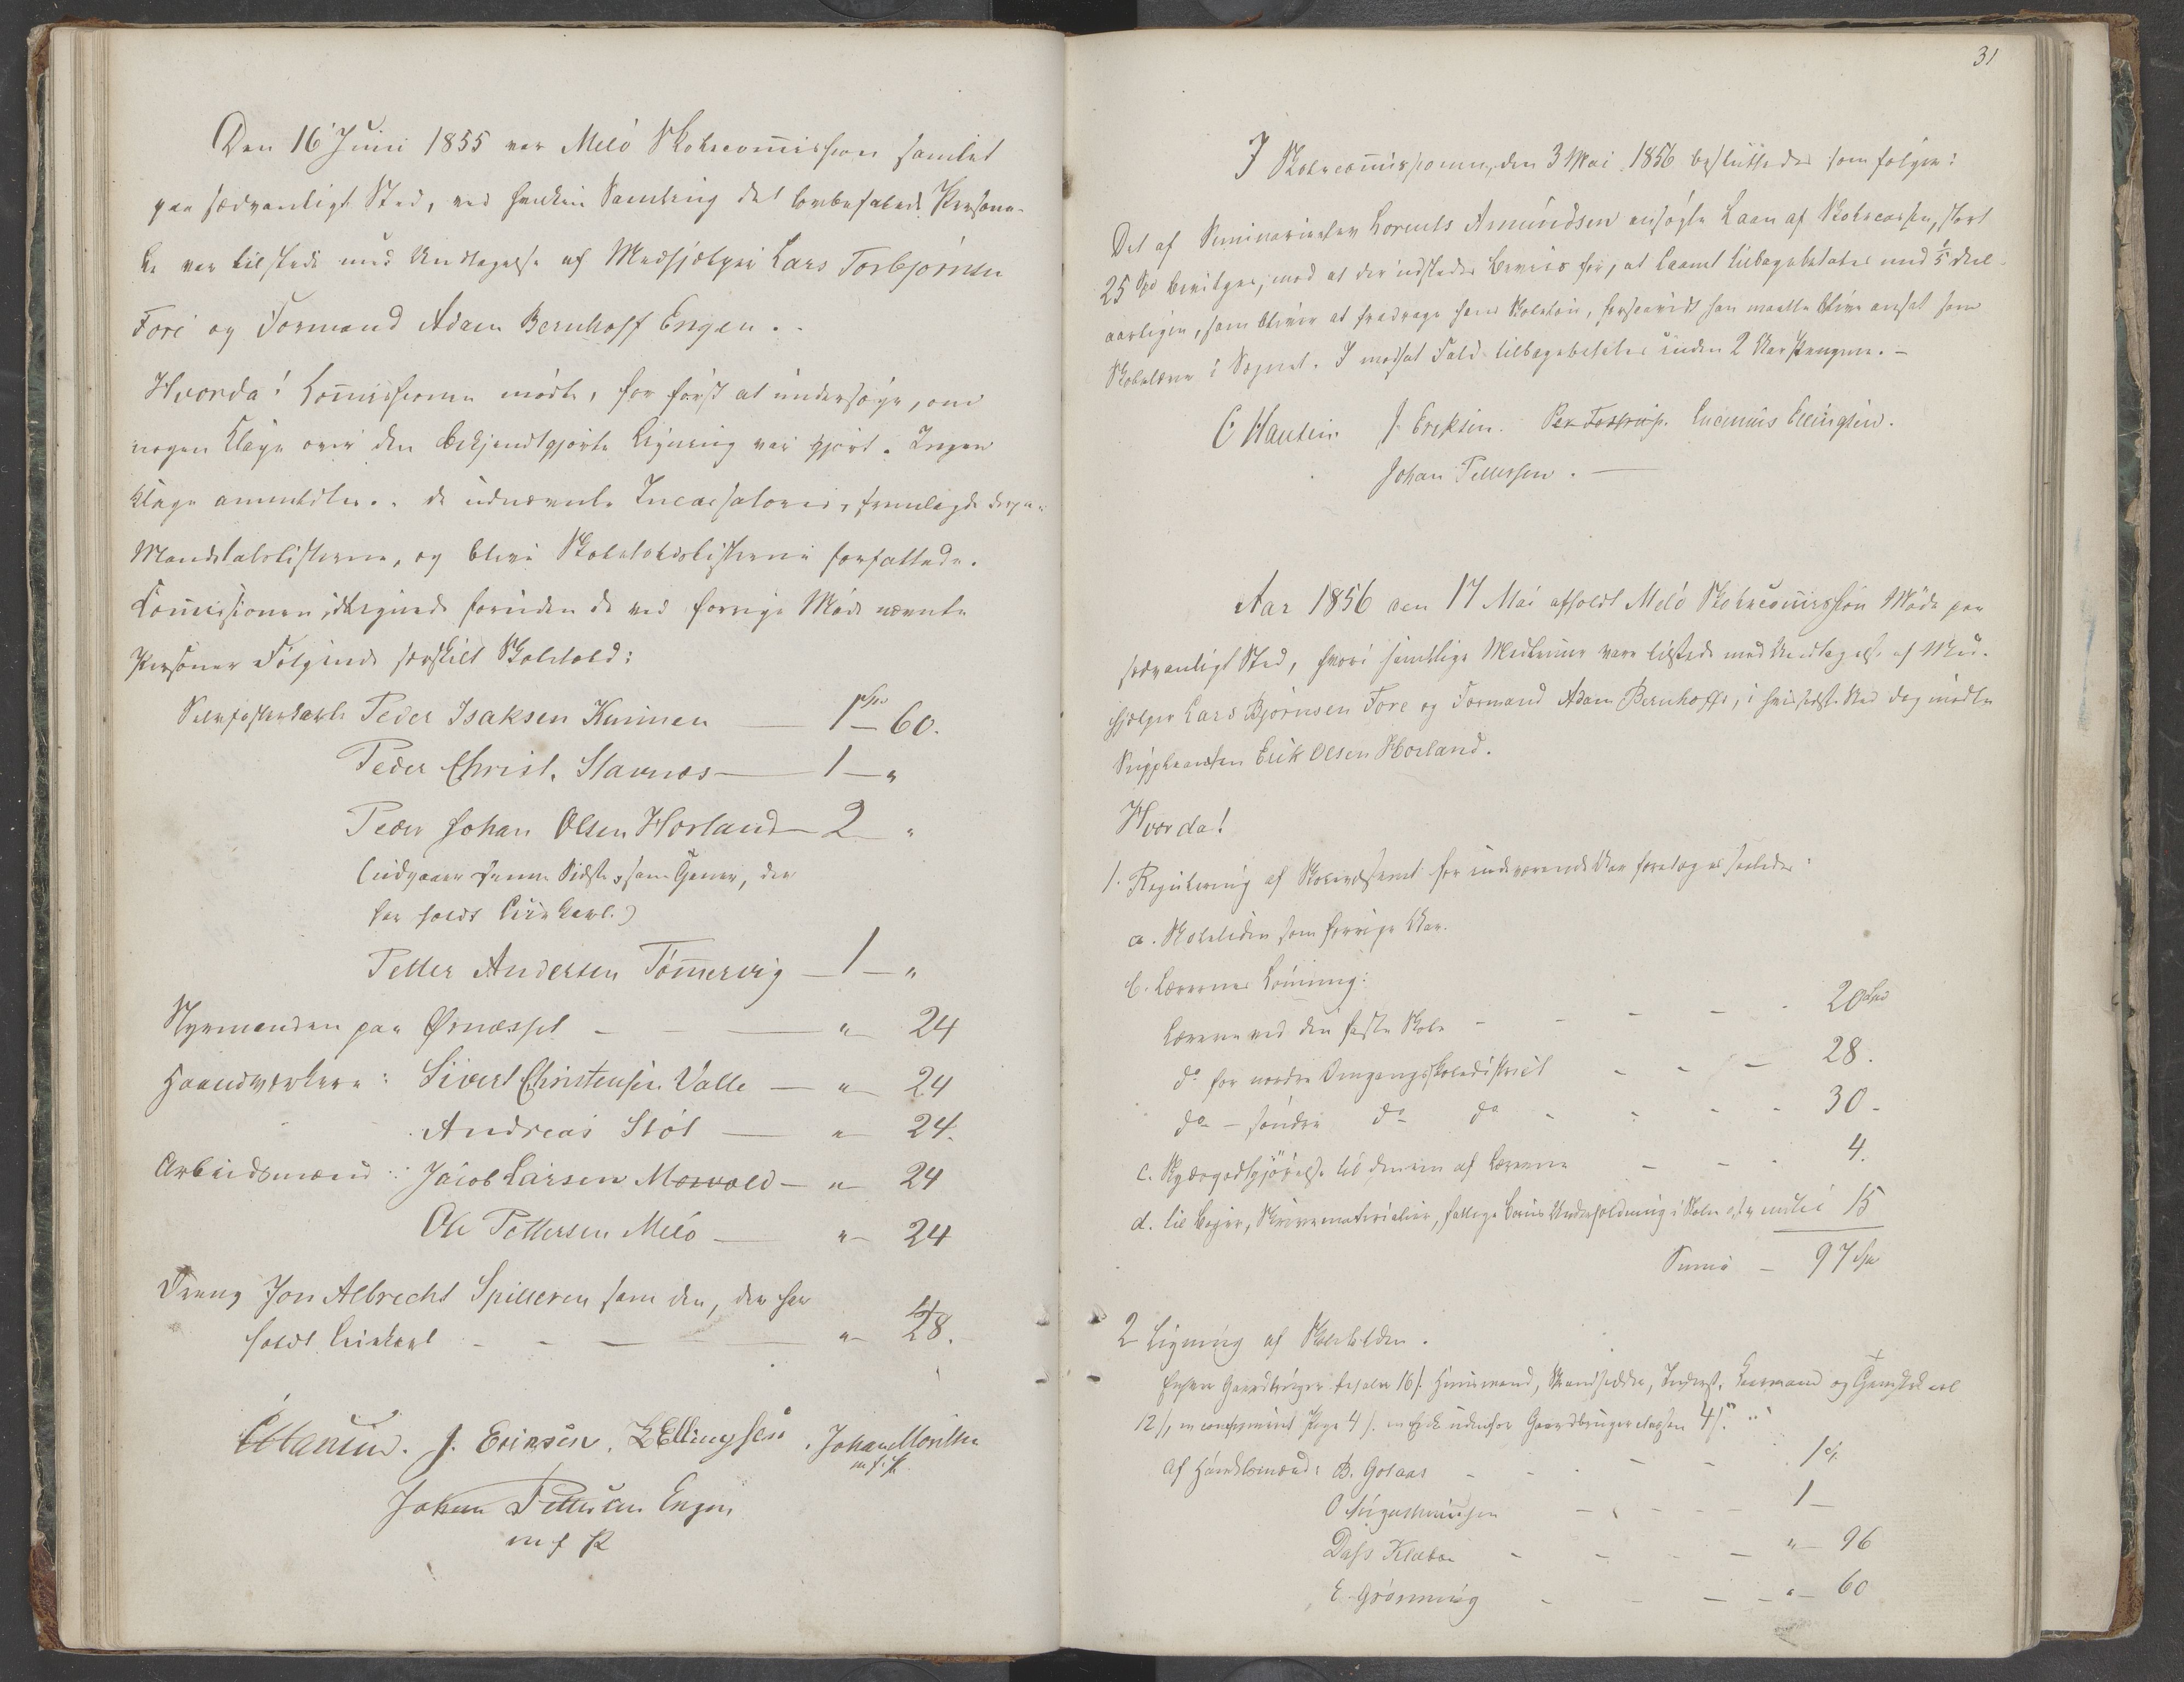 Den 16 Juni 1855 var Melö Skolecom̅ission samlet
paa sædvanligt Sted, ved hvilken Samling det lovbefalede Persona-
le var tilstede med Undtagelse af Medhjelper Lars Torbjörnsen
Fore og Formand Adam Bernhoff Engen.
Hvorda! Com̅issionen mödte, for först at undersöge, om
nogen Klage over den bekjendtgjorte Ligning var gjort. Ingen
Klage anmeldtes. de udnævnte Incassatores, fremlagde
Mandtalslisterne, og bleve Skoletoldslisterne forfattede.
Com̅issionen ilignede foruden de ved forrige Möde nævnte
Personer Fölgende særskilt Skoletold:
Peder Isaksen Kunnen 1 Spd 60.
Peder Christ. Stavnes 1 - "
Peder Johan Olsen Horland 2 "
(udgaaer denne Sidste, som Gener, der
har holdt Leiekarl.)
Petter Andersen Töm̅ervig - 1 - "
Styrmanden paa Ørnæsset - " 24
Haandværkere: Sivert Christensen Valle - " 24
Andreas Stöt - " 24.
Arbeidsmænd: Jacob Larsen Mosvold - " 24
Ole Pettersen Melö - " 24
Dreng Jon Albrecht Spilderen som den, der har
holdt Leiekarl - " 48.
CHansen. J. Eriksen. LEllingsen. Johan
m.f.P.
Johan Pettersen Engen
m f P
31
I Skolecom̅issionen, den 3 Mai 1856 besluttedes som fölger:
Det af Seminarielev Lorents Amundsen ansögte Laan af Skolecassen, stort
25 Spd bevilges, mod at der udstedes Beviis for, at Laanet tilbagebetales med 1/5 Deel
aarligen, som bliver at fradrage hans Skolelön, forsaavidt han maatte blive ansat som
Skolelærer i Sognet. I modsat Fald tilbagebetales inden 2 Aar Pengene. -
C Hansen J. Eriksen. Lucanus Ellingsen.
Johan Pettersen. -
Aar 1856 den 17 Mai afholdt Melö Skolecom̅ission Möde paa
sædvanligt Sted, hvori samtlige Medlemmer vare tilstede med Undtagelse af Med-
hjelper Lars Björnsen Fore og Formand Adam Bernhoff, i hvis sidste Sted dog mödte
Suppleanten Erik Olsen Horland.
Hvorda!
1. Regulering af Skolevæsenet for indeværende Aar foretoges saaledes:
a. Skoletiden som forrige Aar.
b. Lærernes Lönning:
Læreren ved den faste Skole - - - - 20 Spd
do for nordre Omgangsskoledistrict - - - 28.
do - söndre do do - - - - 30 -
c. Skydsgodtgjörelse til den ene af Lærerne - - - 4.
d. til Böger, Skrivematerialier, fattige Börns Underholdning i Skolen 15
Sum̅a - 97 Spd
2 Ligning af Skoletolden.
Enhver Gaardbruger betaler 16 s. Huusmand, Strandsidder, Inderst, Leiermand og Gaardskarl
12 s, en confirmeret Pige 4 s. udenfor Gaardbrugerclassen 4 s.
Af Handelsmænd: B. Golaas - - - - 1 Spd
O Augustinussen - - - - 1 -
Dass Kleboe - - - " - 96
E. Grönning - - - " - 60